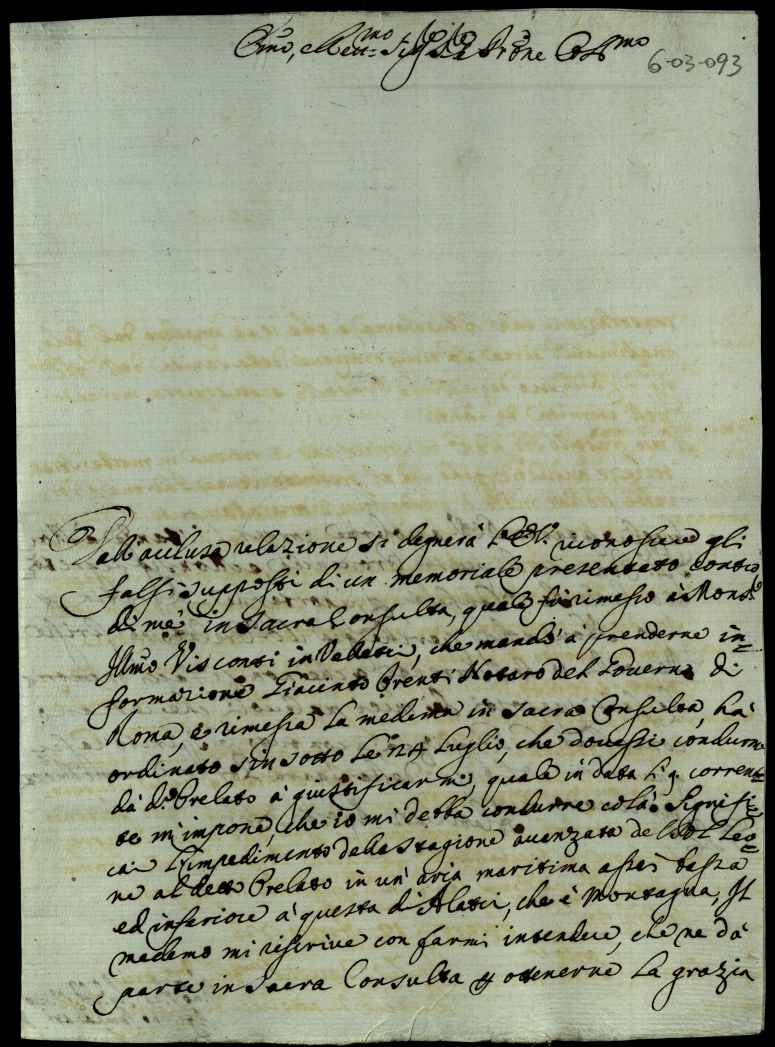 6-03-093
Dall'acclusa relazione si degnerà riconoscere gli
falsi supposti di un memoriale presentato contro
di mè in Sacra Consulta, quale fù rimesso à Mons.r
Illmo Visconti in Velletri, che mandò à prenderne in=
formazione Giacinto Notaro del Governo di
Roma, e rimessa la medema in Sacra Consulta, hà
ordinato sin sotto li 24 Luglio, che dovessi condurmi
dà d.o Prelato à giustificarmi, quale in data li 9. corren=
te m'impone, che io mi debba condurre colà. Signifi=
cai l'impedimento della stagione avanzata del Sol Leo=
ne al detto Prelato in un'aria maritima assai bassa
ed inferiore à questa d'Alatri, che è Montagna, Il
medemo mi riscrive con farmi intendere, che ne dà
parte in Sacra Consulta p ottenerne la grazia